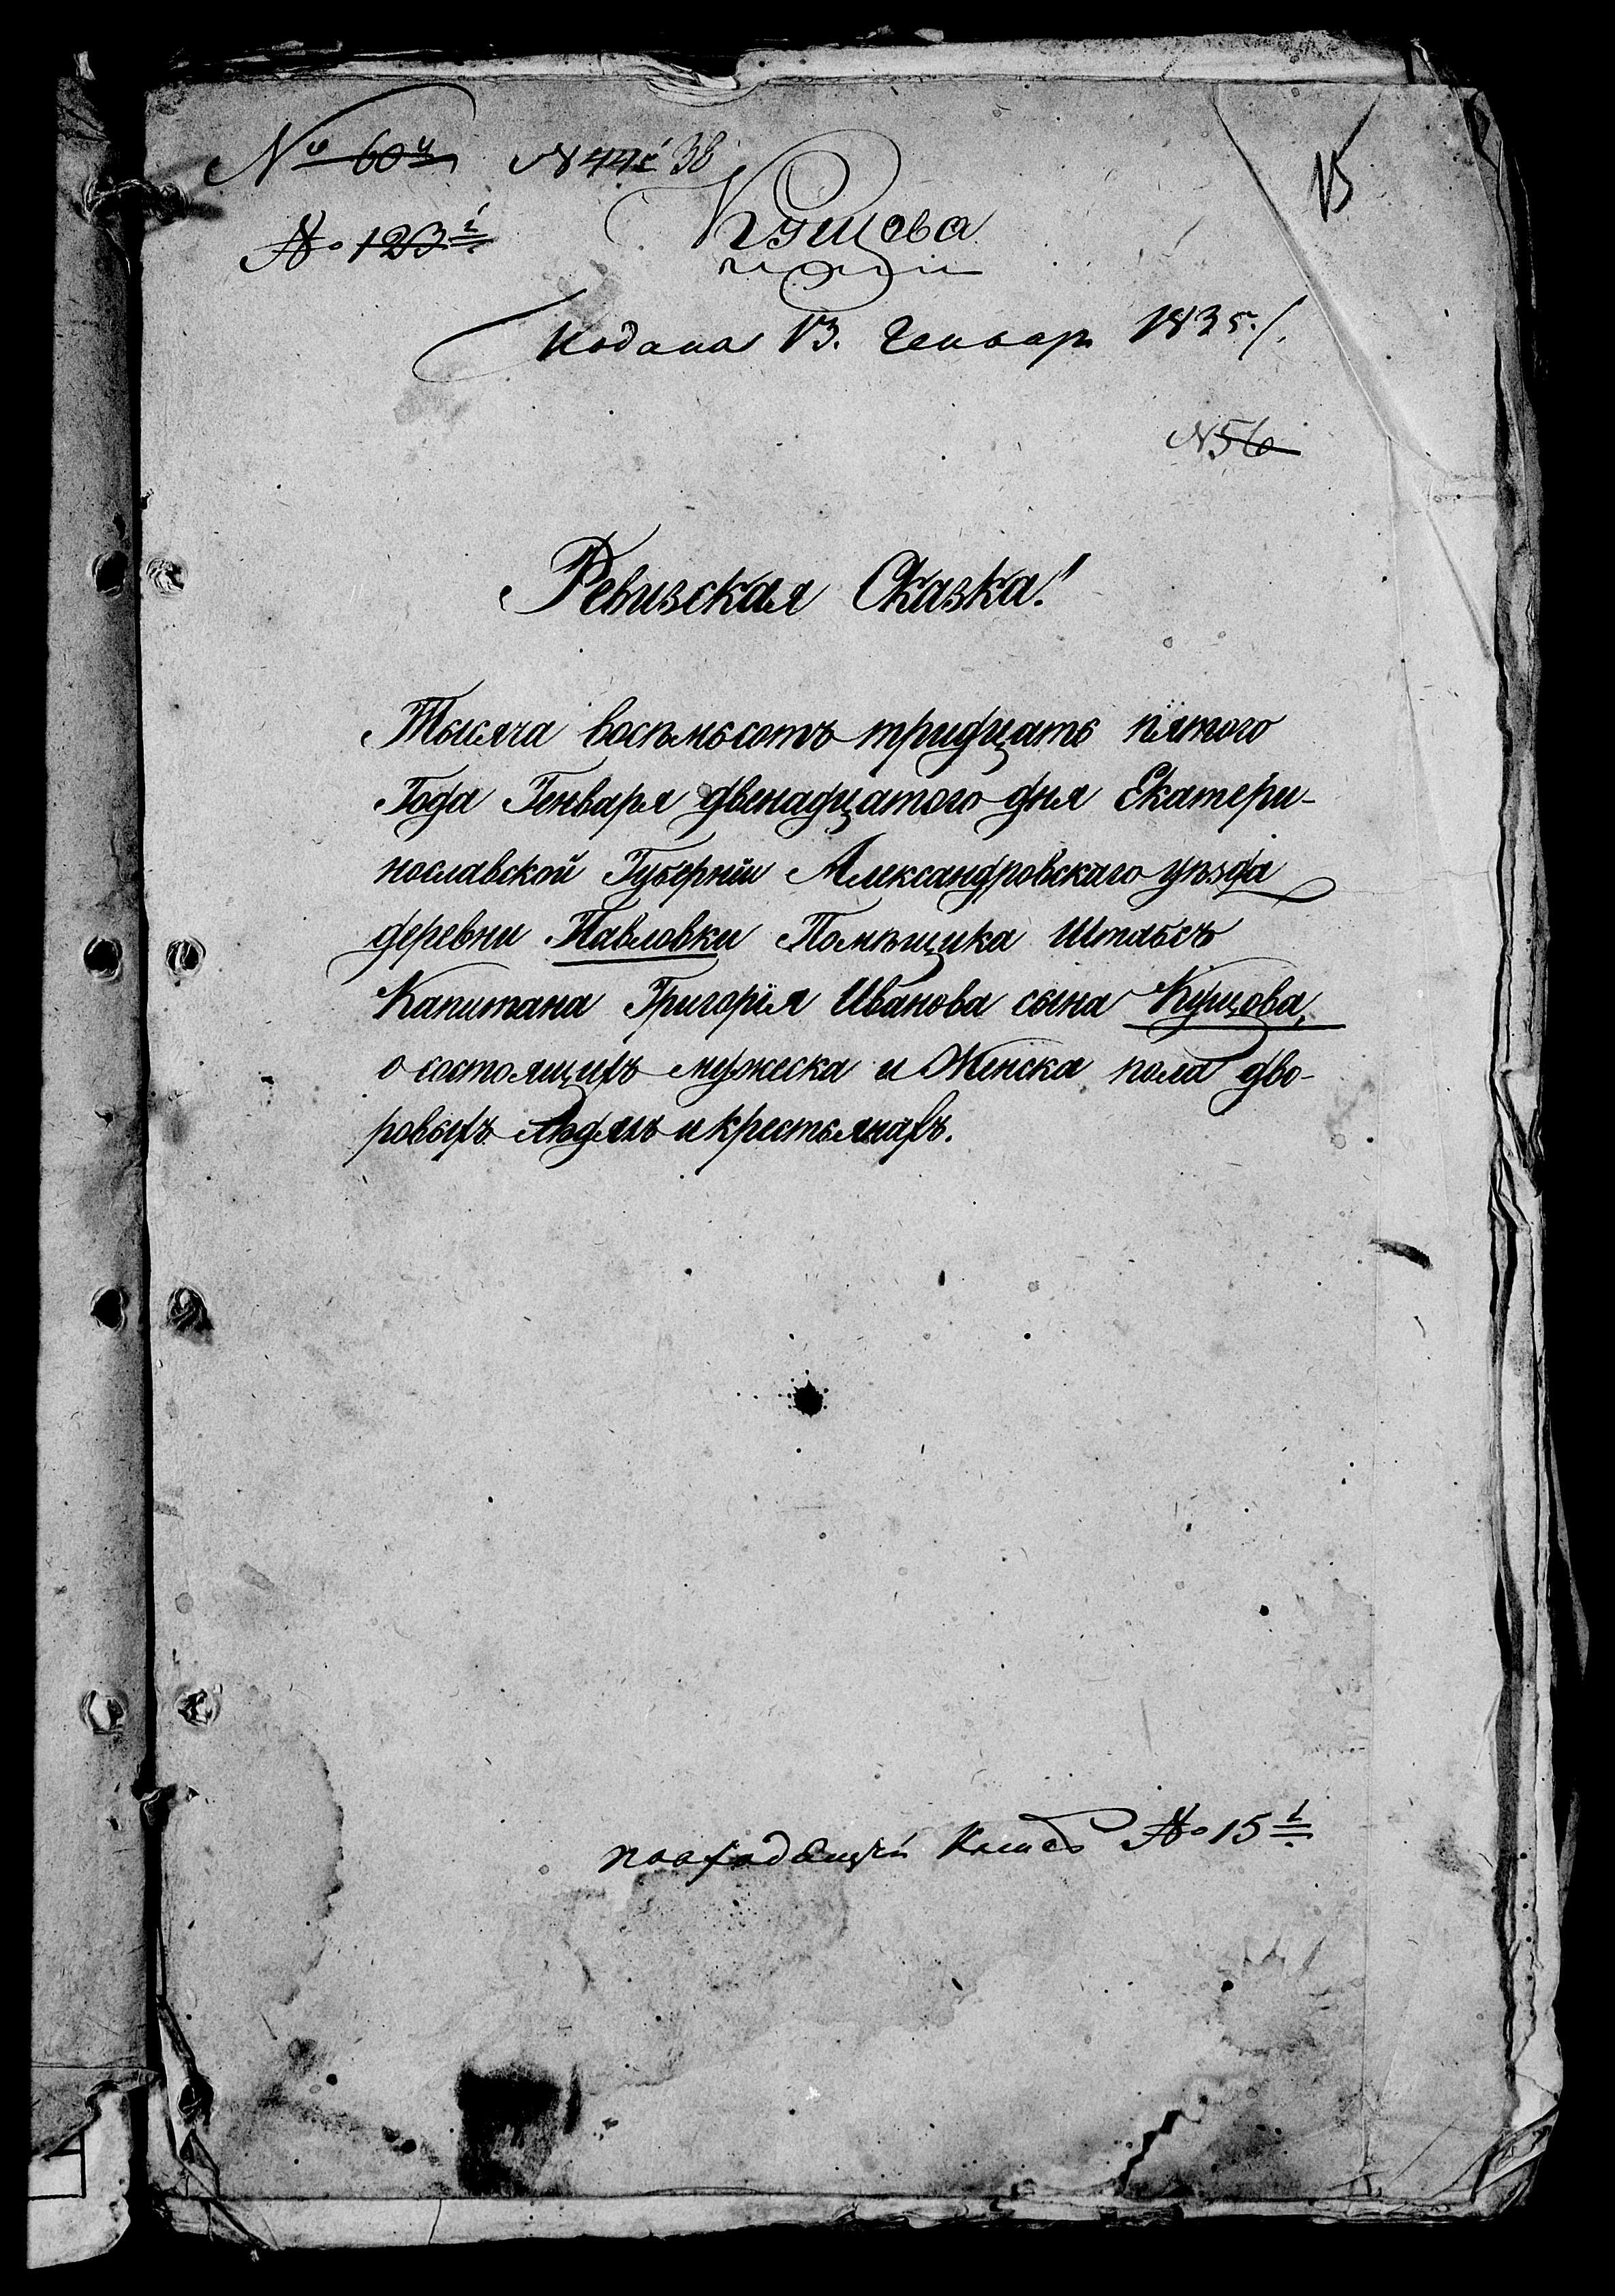 № 60й N 44й 38
15
№ 123й
Кущова
Подана 13. Генваря 1835./.
N56
Ревизская Сказка!
Тысяча восемьсотъ тридцать пятого
Года Генваря двенадцатого дня Екатери-
нославской Губерніи Александровскаго уѣзда
деревни Павловки Помѣщика Штабсъ
Капитана Григорія Иванова сына Кущова,
о состоящихъ мужеска и Женска пола дво-
ровыхъ людяхъ и крестьянахъ.
№ 15й